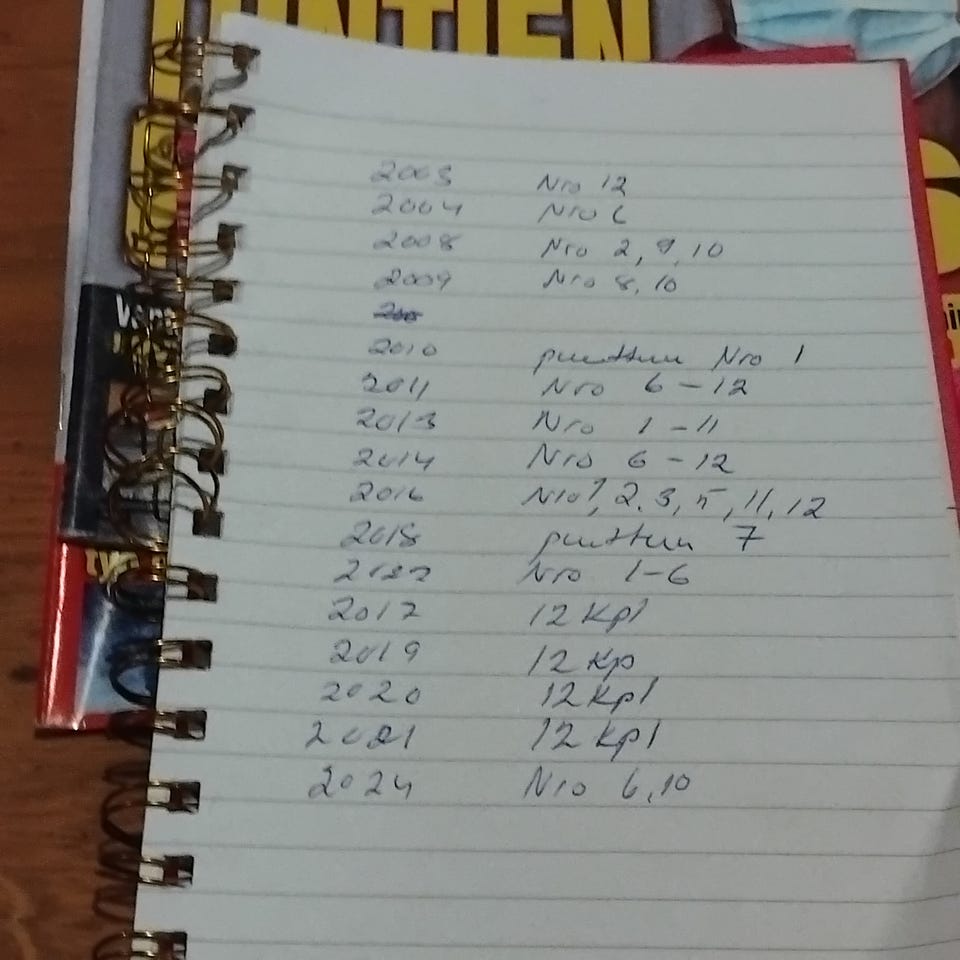 2003 Nro 12
2004 Nro 6
2008 Nro 2, 9, 10
2009 Nro 8, 10
2010 puuttuu Nro 1
2011 Nro 6 - 12
2013 Nro 1 - 11
2014 Nro 6 - 12
2016 Nro 1, 2, 3, 5, 11, 12
2018 puuttuu 7
2022 Nro 1-6
2017 12 kpl
2019 12 kp
2020 12 kpl
2021 12 kpl
2024 Nro 6, 10